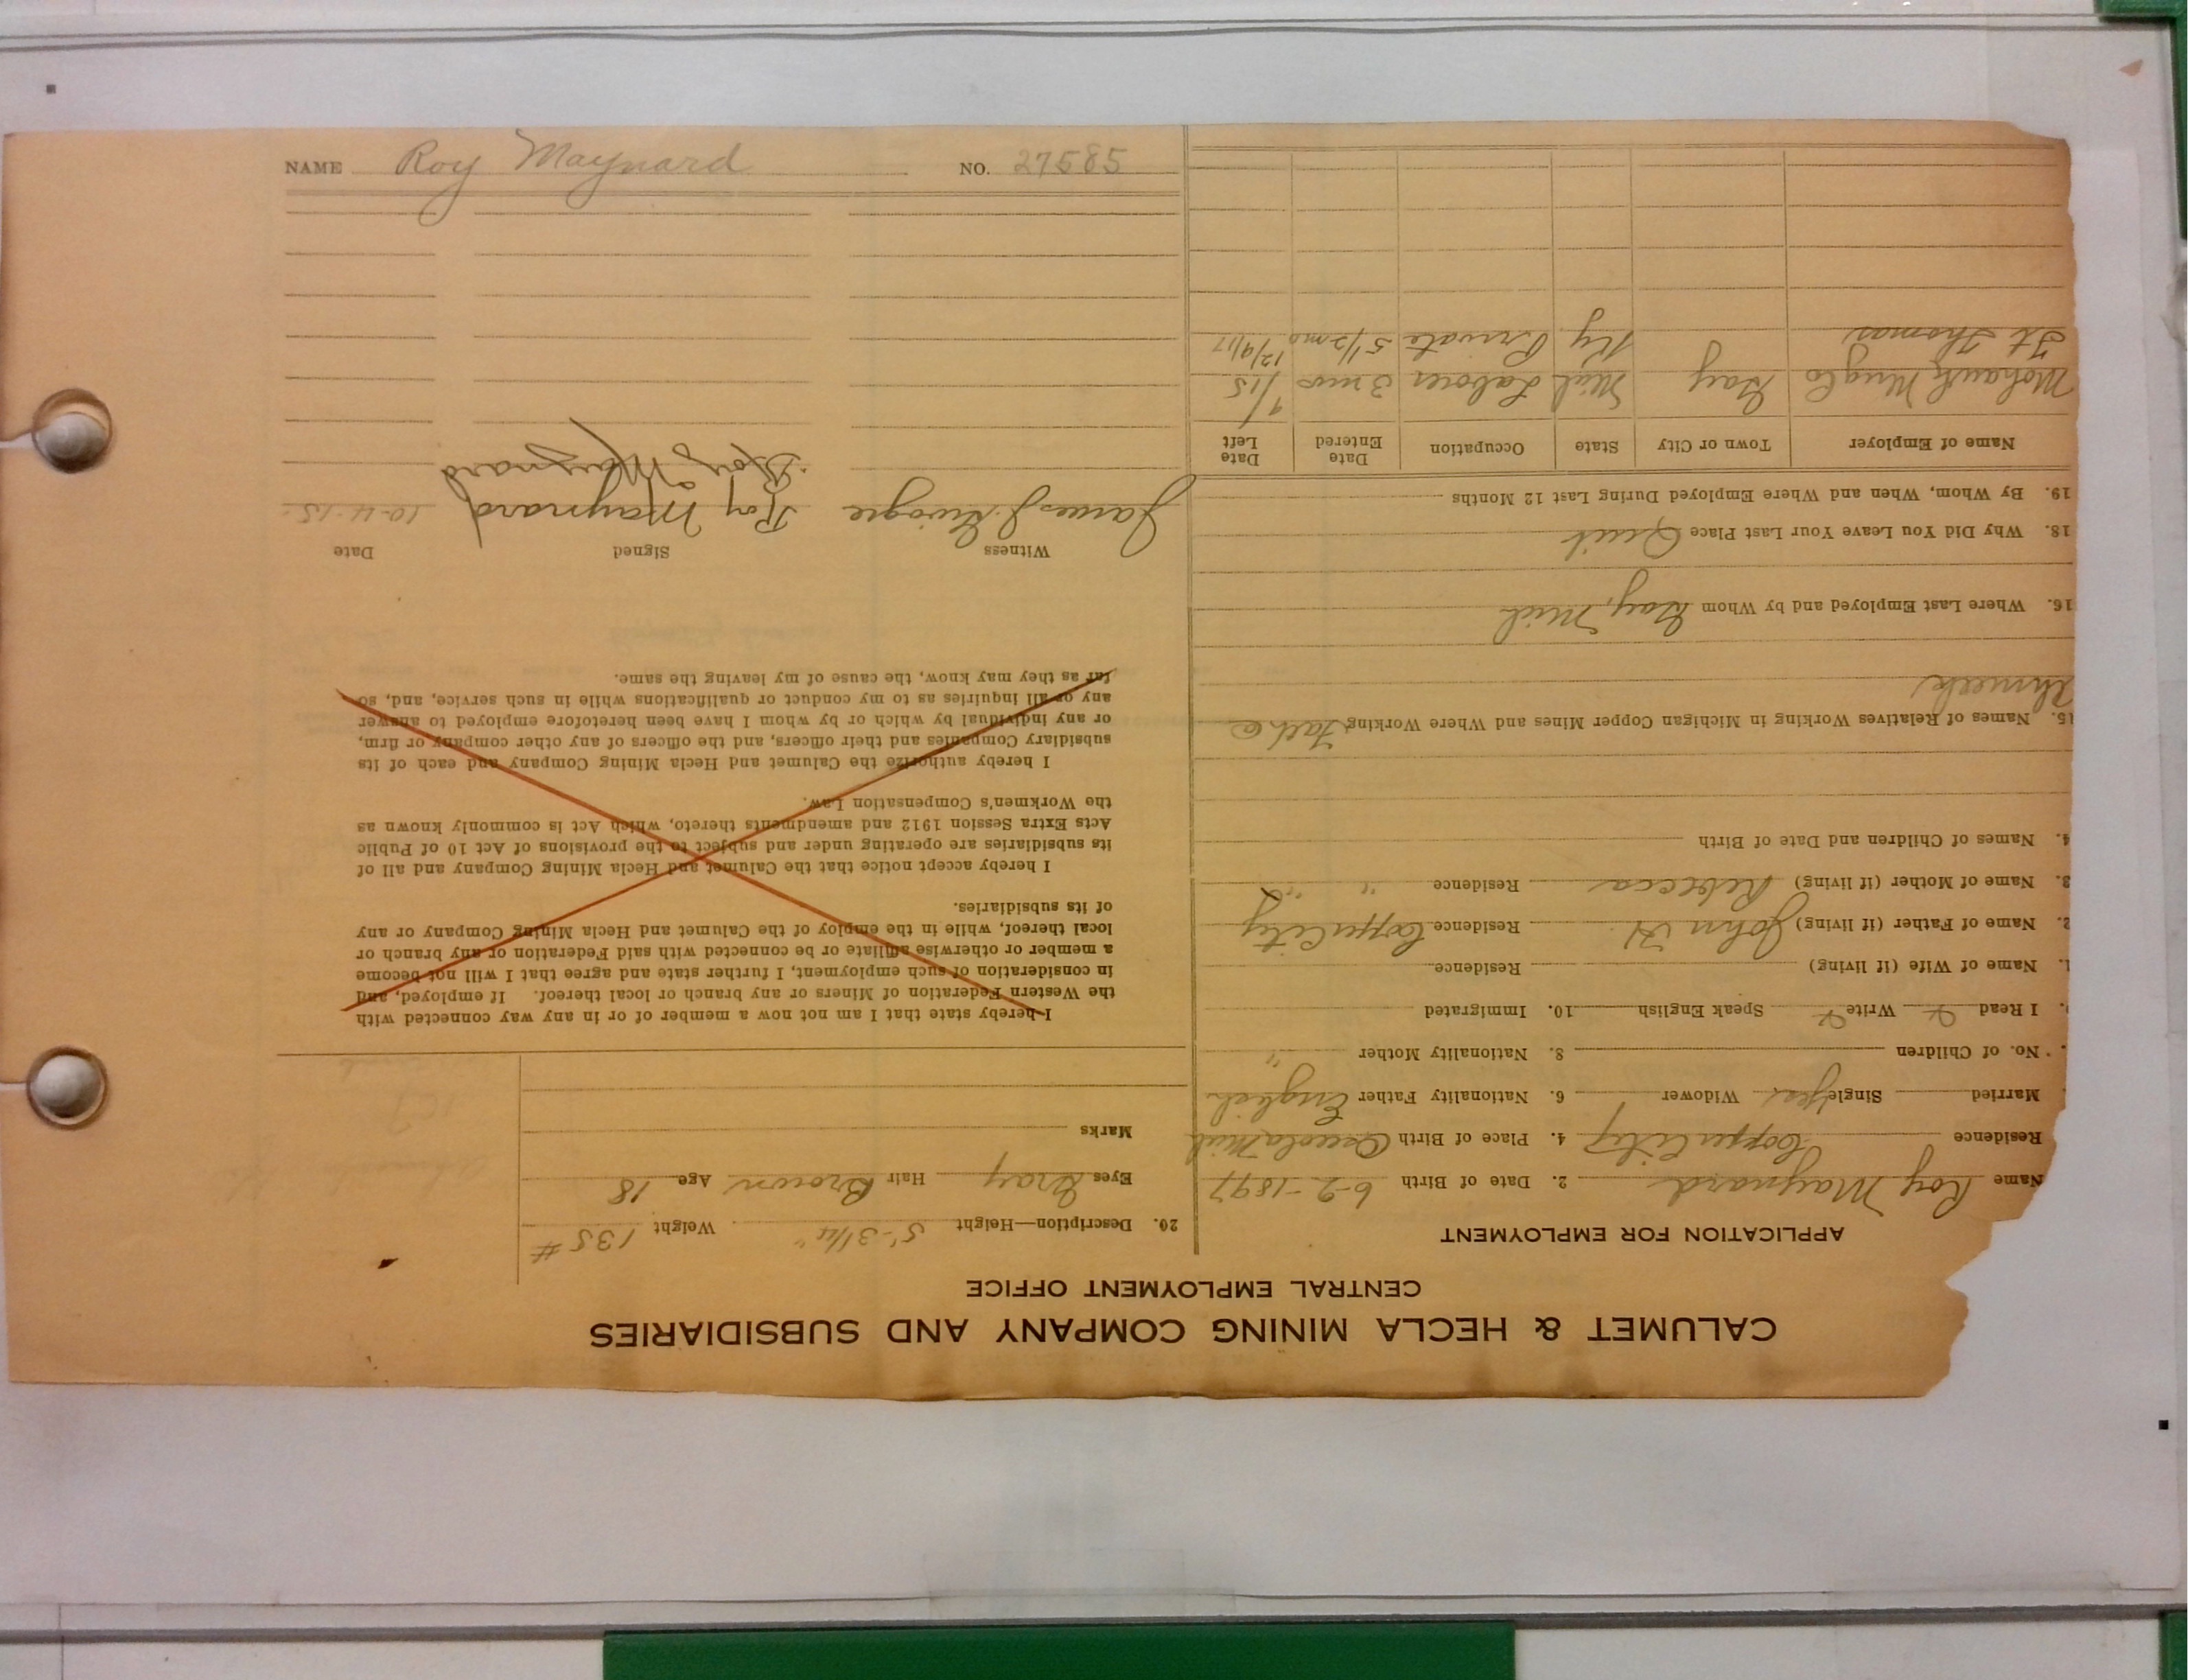 CALUMET & HECLA MINING COMPANY AND SUBSIDIARIES
CENTRAL EMPLOYMENT OFFICE
APPLICATION FOR EMPLOYMENT
Name Roy Maynard 2. Date of Birth 6-2-1897
Residence Copper City 4. Place of Birth Osceola Mich
Married Single Yes Widower 6. Nationality Father English
No. of Children 8. Nationality Mother "
I Read Write Speak English 10. Immigrated
1. Name of Wife (if living) Residence
2. Name of Father (if living) John H. Residence Copper City
3. Name of Mother (if living) Rebecca Residence " "
4. Names of Children and Date of Birth
15. Names of Relatives Working in Michigan Copper Mines and Where Working Father
Ahmeek
16. Where Last Employed and by Whom Gay, Mich
18. Why Did You Leave Your Last Place Quit
19. By Whom, When and Where Employed During Last 12 Months
Name of Employer Town or City State Occupation Date Entered Date Left
Mohawk Mng Co Gay Mich Laborer 3 mos 9/15
Ft Thomas Ky Private 5 1/2 mo 12/9/17
20. Description—Height 5'-3 1/4" Weight 135 #
Eyes Gray Hair Brown Age 18
Marks
I hereby state that I am not now a member of or in any way connected with
the Western Federation of Miners or any branch or local thereof. If employed, and
in consideration of such employment, I further state and agree that I will not become
a member or otherwise affiliate or be connected with said Federation or any branch or
local thereof, while in the employ of the Calumet and Hecla Mining Company or any
of its subsidiaries.
I hereby accept notice that the Calumet and Hecla Mining Company and all of
its subsidiaries are operating under and subject to the provisions of Act 10 of Public
Acts Extra Session 1912 and amendments thereto, which Act is commonly known as
the Workmen's Compensation Law.
I hereby authorize the Calumet and Hecla Mining Company and each of its
subsidiary Companies and their officers, and the officers of any other company or firm,
or any individual by which or by whom I have been heretofore employed to answer
any or all inquiries as to my conduct or qualifications while in such service, and, so
far as they may know, the cause of my leaving the same.
Witness Signed Date
James J. Roy Maynard 10-4-15.
Roy Maynard
NAME Roy Maynard NO. 27585